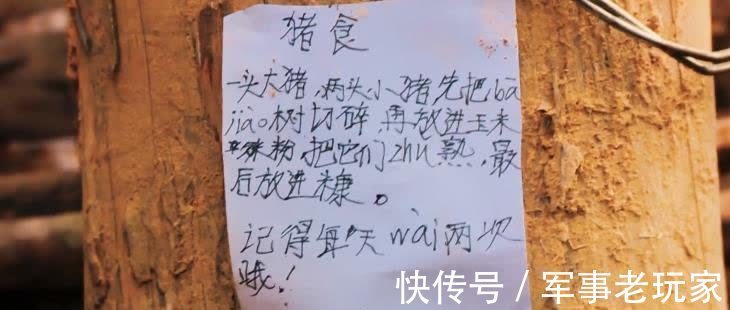 猪食
一头大猪,两头小猪先把bā
jiāo树切碎,再放进玉米
粉,把它们zhǔ熟,最
后放进米糠。
记得每天wài两次
哦!
快传号 / 军事老玩家